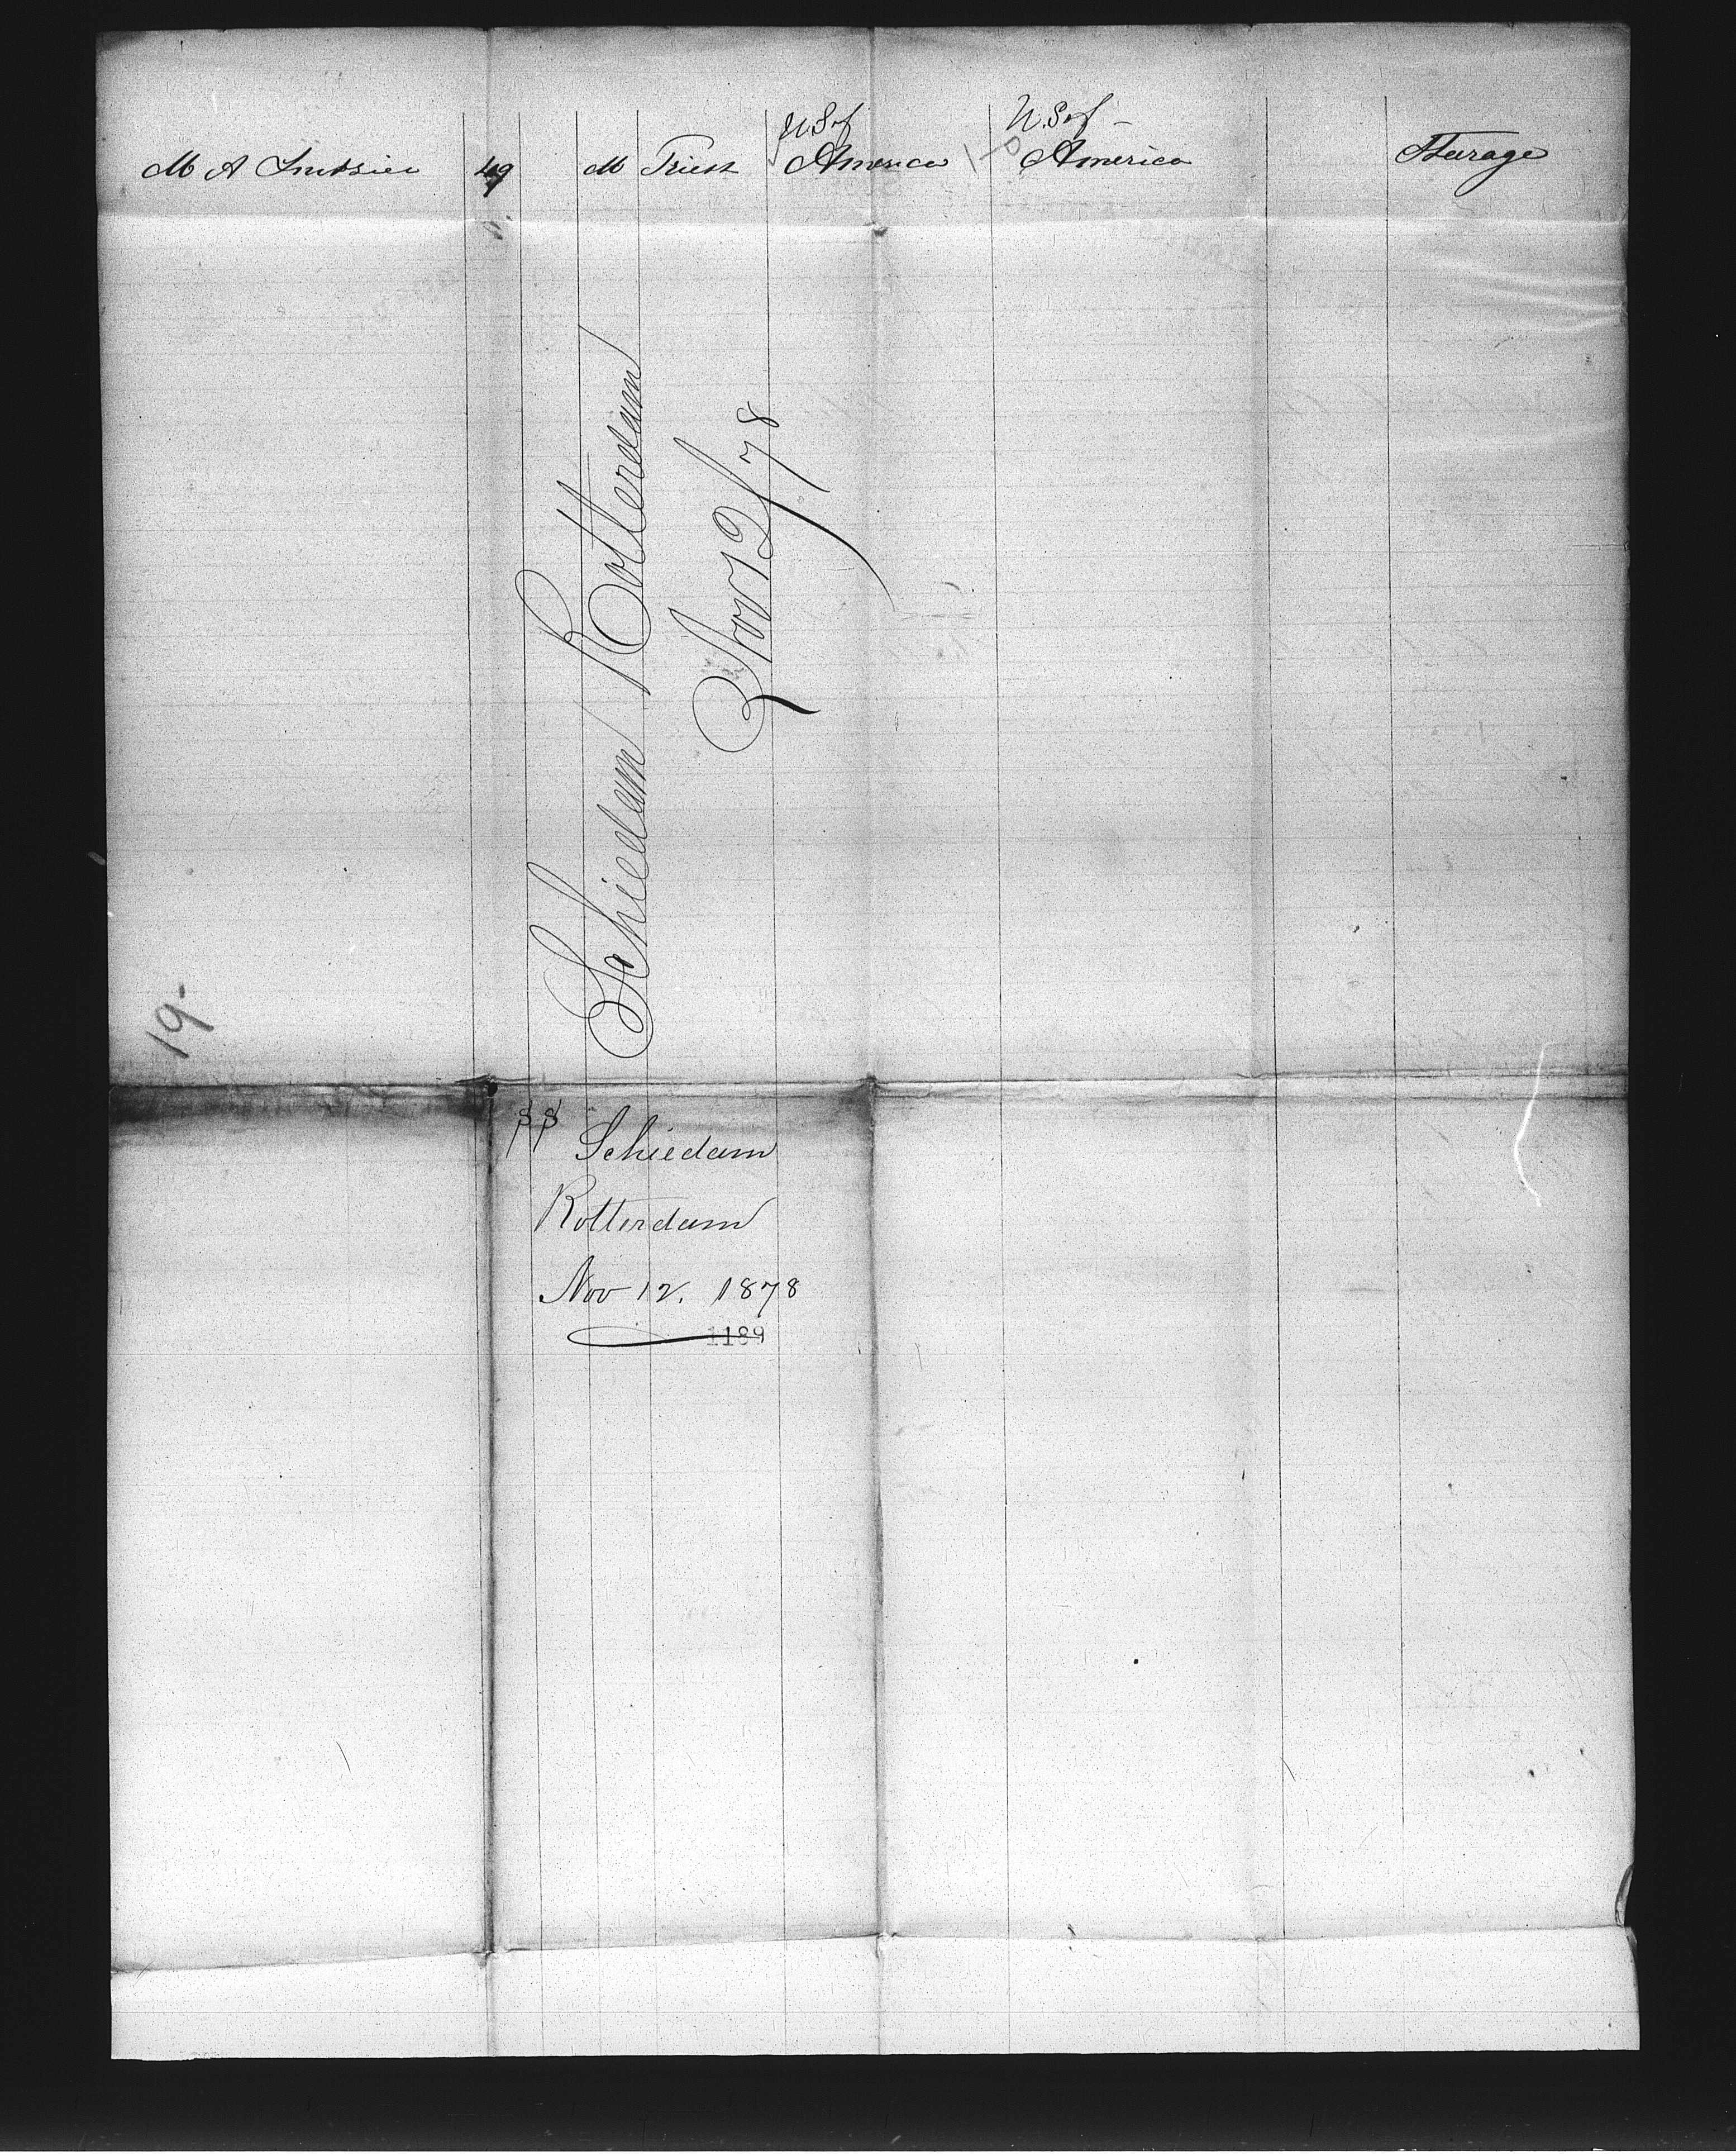 U.S. of U.S. of
M A 49 M Priest America America Steerage
Schiedam Rotterdam
Nov 12/78
19-
SS Schiedam
Rotterdam
Nov 12. 1878
1189